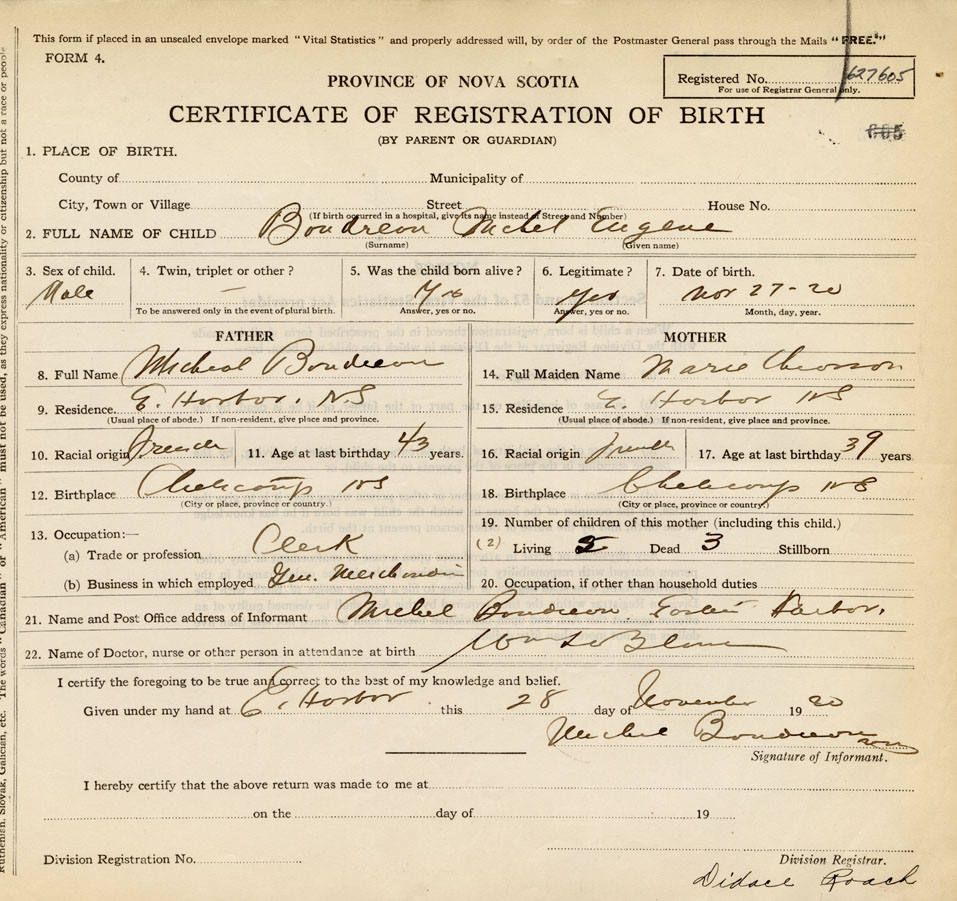 This form if placed in an unsealed envelope marked "Vital Statistics" and properly addressed will, by order of the Postmaster General pass through the Mails "FREE."
FORM 4.
PROVINCE OF NOVA SCOTIA
Registered No. 627605
For use of Registrar General only.
CERTIFICATE OF REGISTRATION OF BIRTH
605
(BY PARENT OR GUARDIAN)
1. PLACE OF BIRTH.
County of Municipality of
City, Town or Village Street House No.
(If birth occurred in a hospital, give its name instead of Street and Number)
2. FULL NAME OF CHILD Boudreau Michel Eugene
(Surname) (Given name)
3. Sex of child. 4. Twin, triplet or other? 5. Was the child born alive? 6. Legitimate? 7. Date of birth.
Male — Yes Yes Nov 27-20
To be answered only in the event of plural birth. Answer, yes or no. Answer, yes or no. Month, day, year.
FATHER MOTHER
8. Full Name Micheal Boudreau 14. Full Maiden Name Marie
9. Residence. E. Harbor. NS 15. Residence E. Harbor NS
(Usual place of abode.) If non-resident, give place and province. (Usual place of abode.) If non-resident, give place and province.
10. Racial origin French 11. Age at last birthday 43 years. 16. Racial origin French 17. Age at last birthday 39 years
12. Birthplace Cheticamp NS 18. Birthplace Cheticamp NS
(City or place, province or country.) (City or place, province or country.)
13. Occupation:— 19. Number of children of this mother (including this child.)
(a) Trade or profession Clerk (2) Living 5 Dead 3 Stillborn
(b) Business in which employed Gen. Merchandise 20. Occupation, if other than household duties
21. Name and Post Office address of Informant Michel Boudreau Eastern Harbor.
22. Name of Doctor, nurse or other person in attendance at birth Wm LeBlanc
I certify the foregoing to be true and correct to the best of my knowledge and belief.
Given under my hand at E. Harbor this 28 day of November 19 20
Michel Boudreau
Signature of Informant.
I hereby certify that the above return was made to me at
on the day of 19
Division Registration No. Division Registrar.
Didace Roach
Ruthenian, Slovak, Galician, etc. The words "Canadian" or "American" must not be used, as they express nationality or citizenship but not a race or people